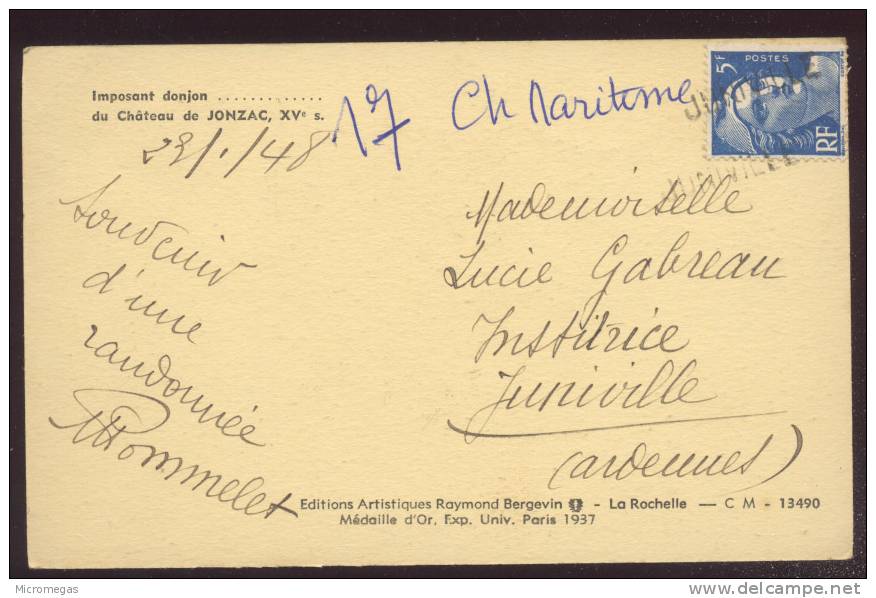 Imposant donjon .............
du Château de JONZAC, XVe s.
17 Ch Maritime
5F POSTES
RF
JUNIVILLE
JUNIVILLE
23/1/48
Souvenir
d'une
randonnée
Pommelet
Mademoiselle
Lucie Gabreau
Institrice
Juniville
(Ardennes)
Editions Artistiques Raymond Bergevin - La Rochelle — C M - 13490
Médaille d'Or, Exp. Univ. Paris 1937
Micromegas
www.delcampe.net